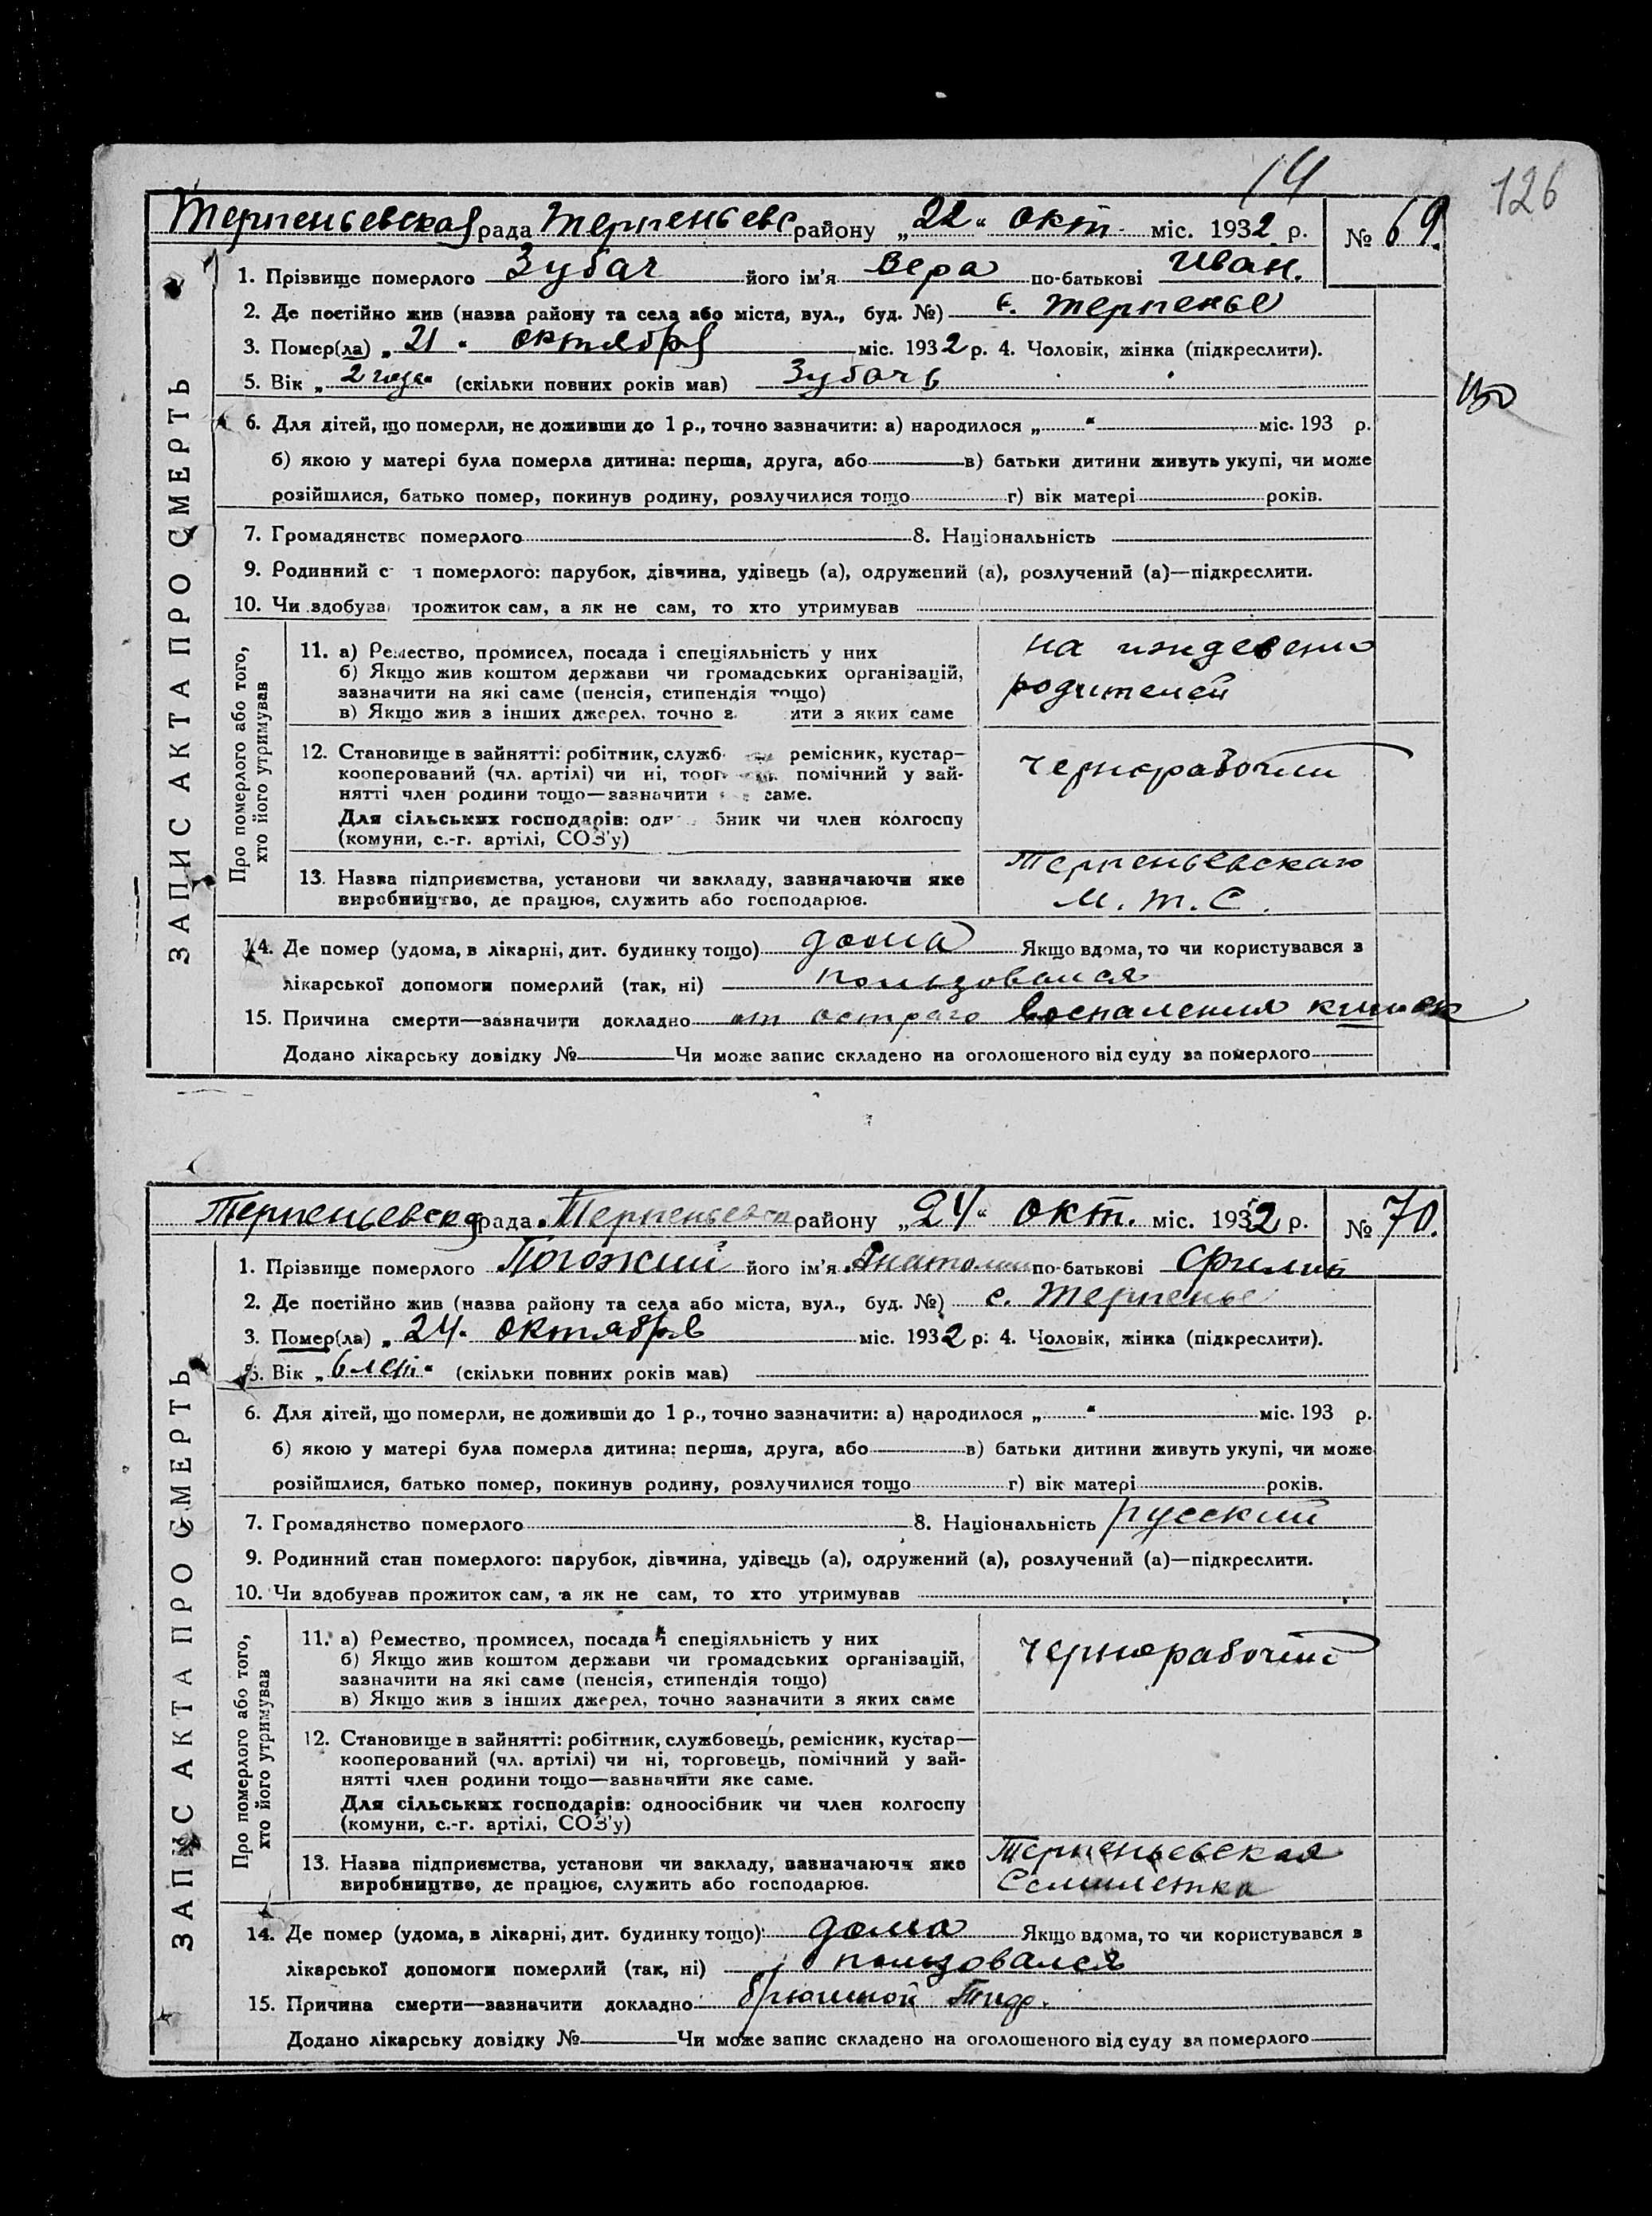 14
126
Терпеньевская рада Терпеньевс району „22“ окт. міс. 1932 р. № 69.
ЗАПИС АКТА ПРО СМЕРТЬ
1. Прізвище померлого Зубач його ім'я Вера по-батькові Иван.
2. Де постійно жив (назва району та села або міста, вул., буд. №) с. Терпенье
3. Помер(ла) „21“ октября міс. 1932 р. 4. Чоловік, жінка (підкреслити).
5. Вік „2 года“ (скільки повних років мав) Зубачь
6. Для дітей, що померли, не доживши до 1 р., точно зазначити: а) народилося „ “ міс. 193 р.
б) якою у матері була померла дитина: перша, друга, або в) батьки дитини живуть укупі, чи може
розійшлися, батько помер, покинув родину, розлучилися тощо г) вік матері років.
7. Громадянство померлого 8. Національність
9. Родинний с н померлого: парубок, дівчина, удівець (а), одружений (а), розлучений (а)—підкреслити.
10. Чи здобува прожиток сам, а як не сам, то хто утримував
Про померлого або того,
хто його утримував
11. а) Ремество, промисел, посада і спеціяльність у них
б) Якщо жив коштом держави чи громадських організацій,
зазначити на які саме (пенсія, стипендія тощо)
в) Якщо жив з інших джерел, точно з ити з яких саме
на иждевении
родителей
12. Становище в зайнятті: робітник, служб ремісник, кустар—
кооперований (чл. артілі) чи ні, торг помічний у зай-
нятті член родини тощо—зазначити саме.
Для сільських господарів: одн бник чи член колгоспу
(комуни, с.-г. артілі, СОЗ'у)
чернорабочий
13. Назва підприємства, установи чи закладу, зазначаючи яке
виробництво, де працює, служить або господарює.
Терпеньевская
М. Т. С.
14. Де помер (удома, в лікарні, дит. будинку тощо) дома Якщо вдома, то чи користувався з
лікарської допомоги померлий (так, ні) пользовался
15. Причина смерти—зазначити докладно от остраго воспаления кишек
Додано лікарську довідку № Чи може запис складено на оголошеного від суду за померлого
Терпеньевская рада Терпеньевск району „24“ окт. міс. 1932 р. № 70.
ЗАПИС АКТА ПРО СМЕРТЬ
1. Прізвище померлого Погожий його ім'я Анатолий по-батькові Филип
2. Де постійно жив (назва району та села або міста, вул., буд. №) с. Терпенье
3. Помер(ла) „24“ октября міс. 1932 р. 4. Чоловік, жінка (підкреслити).
5. Вік „6 лет“ (скільки повних років мав)
6. Для дітей, що померли, не доживши до 1 р., точно зазначити: а) народилося „ “ міс. 193 р.
б) якою у матері була померла дитина: перша, друга, або в) батьки дитини живуть укупі, чи може
розійшлися, батько помер, покинув родину, розлучилися тощо г) вік матері років.
7. Громадянство померлого 8. Національність русский
9. Родинний стан померлого: парубок, дівчина, удівець (а), одружений (а), розлучений (а)—підкреслити.
10. Чи здобував прожиток сам, а як не сам, то хто утримував
Про померлого або того,
хто його утримував
11. а) Ремество, промисел, посада і спеціяльність у них
б) Якщо жив коштом держави чи громадських організацій,
зазначити на які саме (пенсія, стипендія тощо)
в) Якщо жив з інших джерел, точно зазначити з яких саме
чернорабочий
12. Становище в зайнятті: робітник, службовець, ремісник, кустар—
кооперований (чл. артілі) чи ні, торговець, помічний у зай-
нятті член родини тощо—зазначити яке саме.
Для сільських господарів: одноосібник чи член колгоспу
(комуни, с.-г. артілі, СОЗ'у)
13. Назва підприємства, установи чи закладу, зазначаючи яке
виробництво, де працює, служить або господарює.
Терпеньевская
Семилетка
14. Де помер (удома, в лікарні, дит. будинку тощо) дома Якщо вдома, то чи користувався з
лікарської допомоги померлий (так, ні) пользовался
15. Причина смерти—зазначити докладно брюшной тиф.
Додано лікарську довідку № Чи може запис складено на оголошеного від суду за померлого